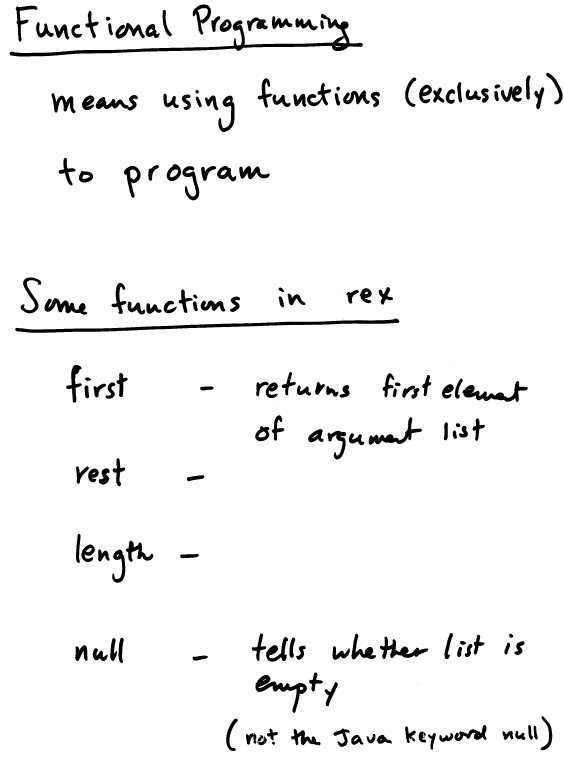 Functional Programming
means using functions (exclusively)
to program
Some functions in rex
first - returns first element
of argument list
rest -
length -
null - tells whether list is
empty
(not the Java keyword null)